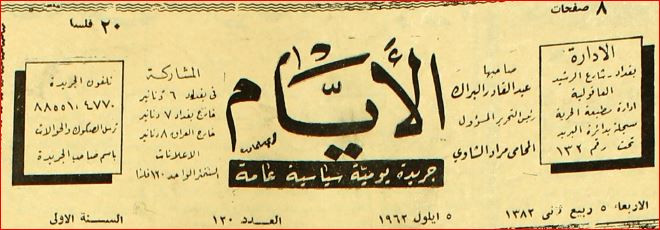 ٨ صفحات
٢٠ فلسا
الادارة
بغداد - شارع الرشيد
العاقولية
ادارة مطبعة الحرية
سجلت بدائرة البريد
تحت رقم ١٣٢
صاحبها
عبد القادر البراك
رئيس التحرير المسؤول
المحامي مراد الشاوي
الأيام
جريدة يومية سياسية عامة
المشاركة
في بغداد ٦ دنانير
خارج بغداد ٧ دنانير
خارج العراق ٨ دنانير
الاعلانات
السنتمتر الواحد ١٢٠ فلسا
تلفون الجريدة
٨٨٥٥١٠٤٧٧٠
ترسل الصكوك والحوالات
باسم صاحب الجريدة
الاربعاء ٥ ربيع ثنى ١٣٨٢
٥ ايلول ١٩٦٢
العدد ١٢٠
السنة الاولى